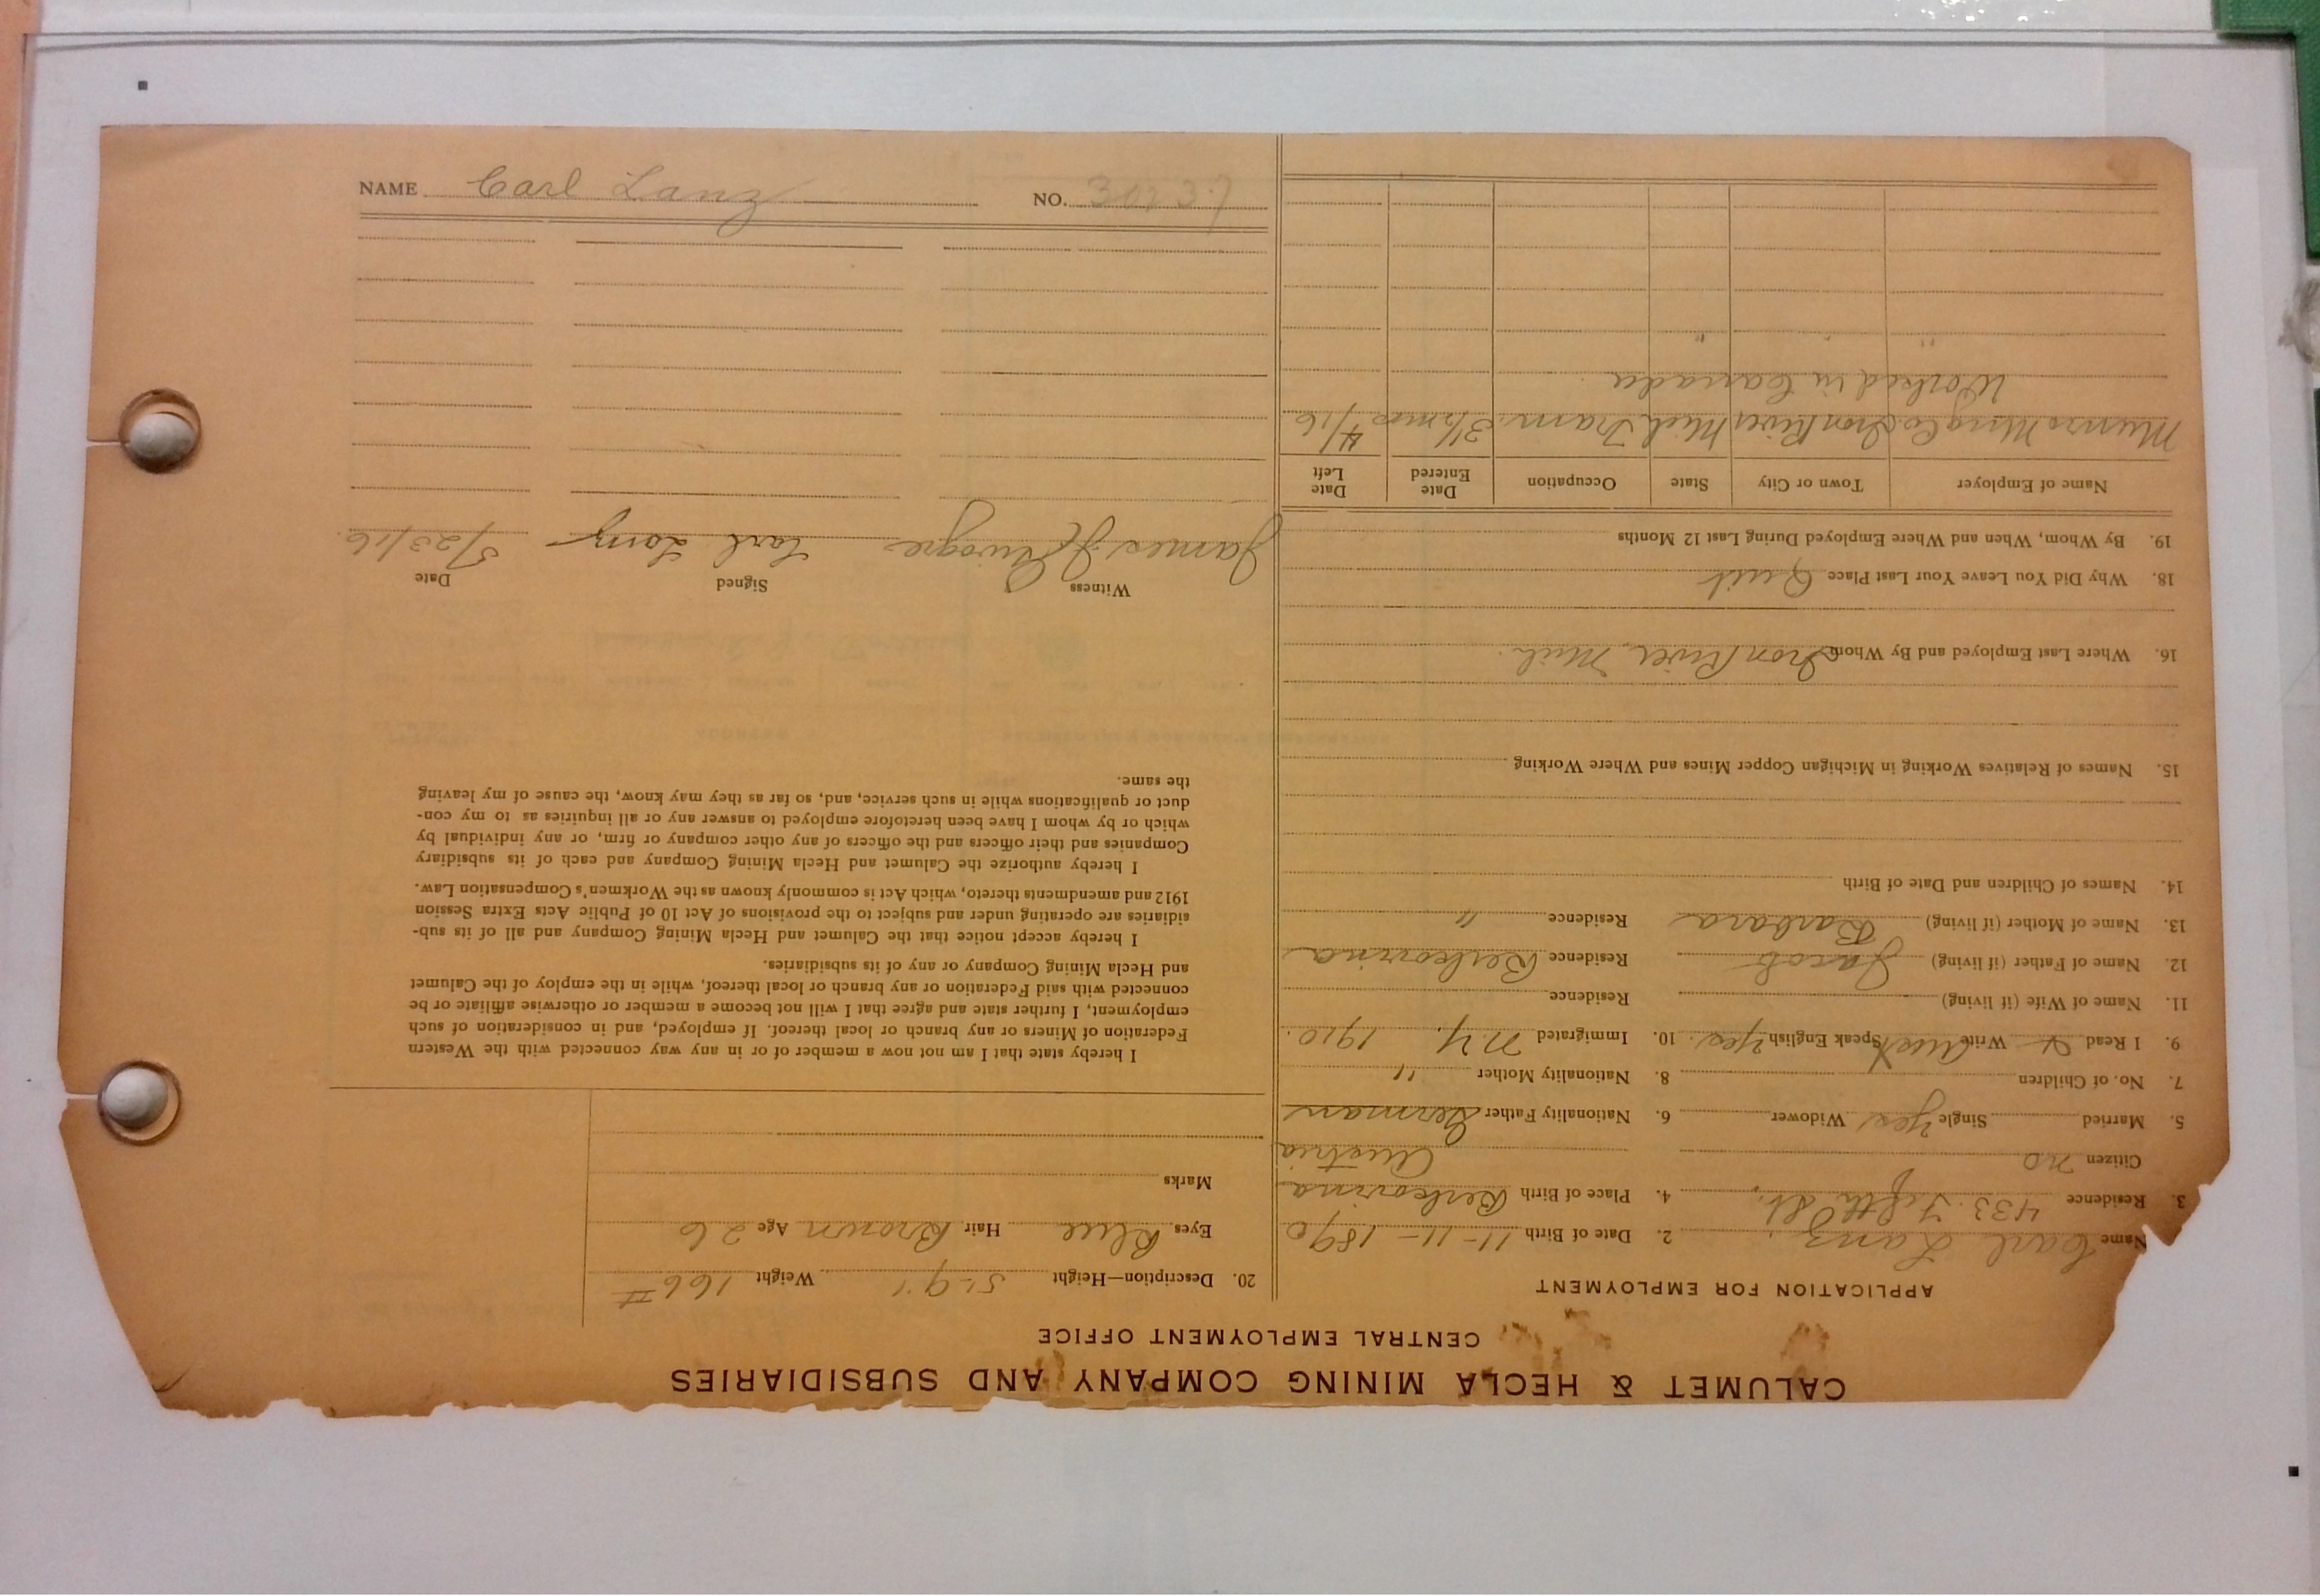 CALUMET & HECLA MINING COMPANY AND SUBSIDIARIES
CENTRAL EMPLOYMENT OFFICE
APPLICATION FOR EMPLOYMENT
Name Carl Lanz. 2. Date of Birth 11-11-1890
3. Residence 433 Fifth St. 4. Place of Birth Berkovina
Citizen no Austria
5. Married Single Yes Widower 6. Nationality Father German
7. No. of Children 8. Nationality Mother "
9. I Read Write Aust Speak English Yes. 10. Immigrated N.Y. 1910.
11. Name of Wife (if living) Residence
12. Name of Father (if living) Jacob Residence Berkovina
13. Name of Mother (if living) Barbara Residence "
14. Names of Children and Date of Birth
15. Names of Relatives Working in Michigan Copper Mines and Where Working
16. Where Last Employed and By Whom Iron River, Mich.
18. Why Did You Leave Your Last Place Quit
19. By Whom, When and Where Employed During Last 12 Months
Name of Employer Town or City State Occupation Date Entered Date Left
Munro Mng Co. Iron River Mich Tram. 3½ mos 4/16
Worked in Canada
" " "
20. Description—Height 5'-9" Weight 166 #
Eyes Blue Hair Brown Age 26
Marks
I hereby state that I am not now a member of or in any way connected with the Western
Federation of Miners or any branch or local thereof. If employed, and in consideration of such
employment, I further state and agree that I will not become a member or otherwise affiliate or be
connected with said Federation or any branch or local thereof, while in the employ of the Calumet
and Hecla Mining Company or any of its subsidiaries.
I hereby accept notice that the Calumet and Hecla Mining Company and all of its sub-
sidiaries are operating under and subject to the provisions of Act 10 of Public Acts Extra Session
1912 and amendments thereto, which Act is commonly known as the Workmen's Compensation Law.
I hereby authorize the Calumet and Hecla Mining Company and each of its subsidiary
Companies and their officers and the officers of any other company or firm, or any individual by
which or by whom I have been heretofore employed to answer any or all inquiries as to my con-
duct or qualifications while in such service, and, so far as they may know, the cause of my leaving
the same.
Witness Signed Date
James Carl Lanz 5/23/16.
NAME Carl Lanz NO.